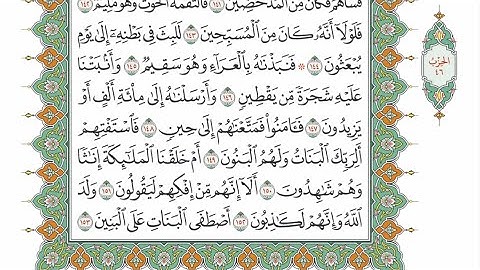 فَسَاهَمَ فَكَانَ مِنَ ٱلْمُدْحَضِينَ ١٤١ فَٱلْتَقَمَهُ ٱلْحُوتُ وَهُوَ مُلِيمٌ ١٤٢
فَلَوْلَآ أَنَّهُۥ كَانَ مِنَ ٱلْمُسَبِّحِينَ ١٤٣ لَلَبِثَ فِى بَطْنِهِۦٓ إِلَىٰ يَوْمِ
يُبْعَثُونَ ١٤٤ ۞ فَنَبَذْنَٰهُ بِٱلْعَرَآءِ وَهُوَ سَقِيمٌ ١٤٥ وَأَنۢبَتْنَا
عَلَيْهِ شَجَرَةً مِّن يَقْطِينٍ ١٤٦ وَأَرْسَلْنَٰهُ إِلَىٰ مِا۟ئَةِ أَلْفٍ أَوْ
يَزِيدُونَ ١٤٧ فَـَٔامَنُوا۟ فَمَتَّعْنَٰهُمْ إِلَىٰ حِينٍ ١٤٨ فَٱسْتَفْتِهِمْ
أَلِرَبِّكَ ٱلْبَنَاتُ وَلَهُمُ ٱلْبَنُونَ ١٤٩ أَمْ خَلَقْنَا ٱلْمَلَٰٓئِكَةَ إِنَٰثًا
وَهُمْ شَٰهِدُونَ ١٥٠ أَلَآ إِنَّهُم مِّنْ إِفْكِهِمْ لَيَقُولُونَ ١٥١ وَلَدَ
ٱللَّهُ وَإِنَّهُمْ لَكَٰذِبُونَ ١٥٢ أَصْطَفَى ٱلْبَنَاتِ عَلَى ٱلْبَنِينَ ١٥٣
الحِزْبُ
٤٦